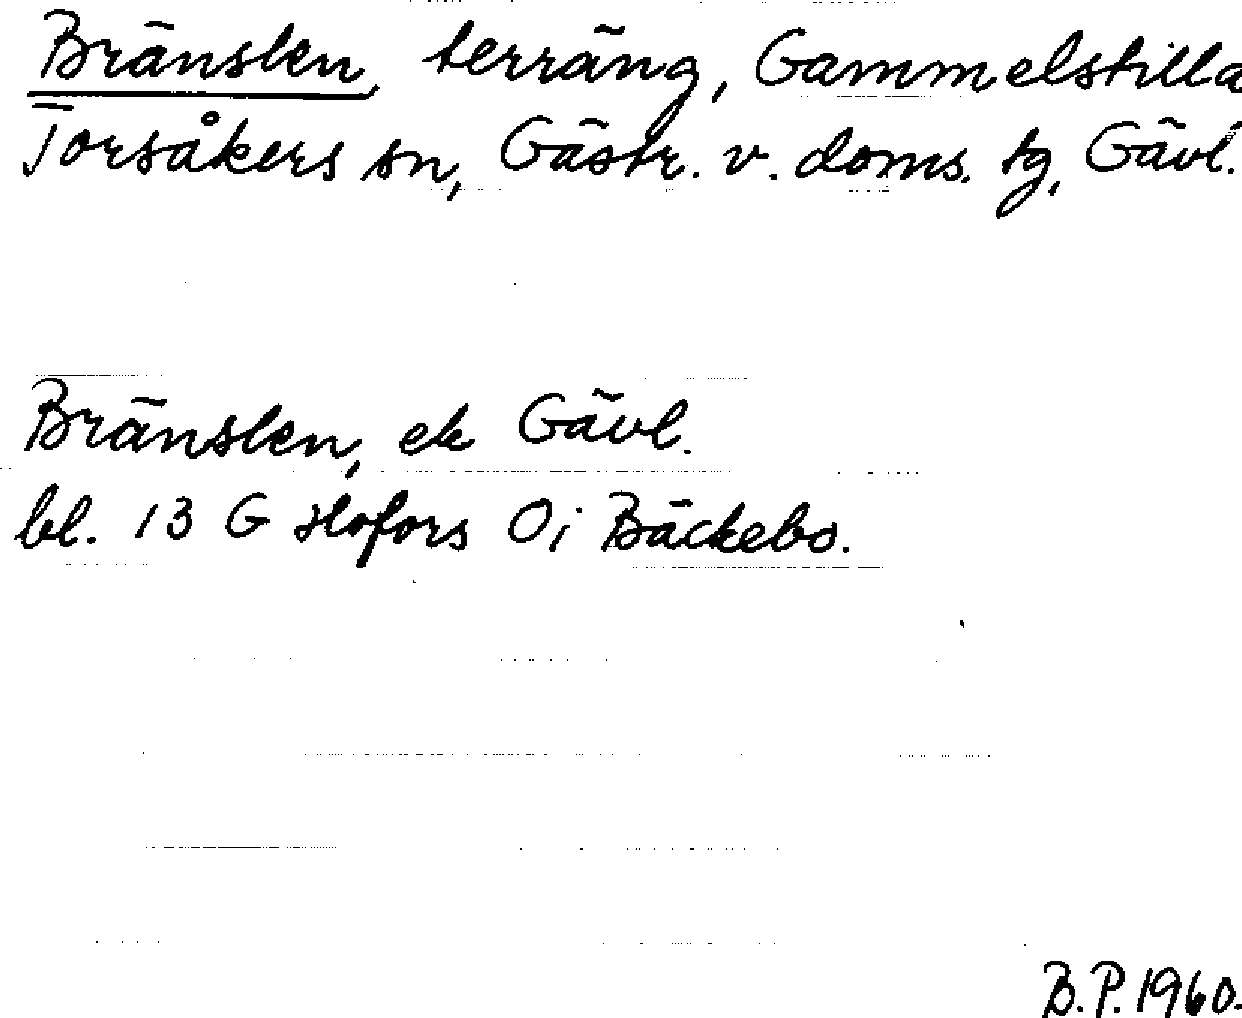 Bränslen, terräng, Gammelstilla
Torsåkers sn, Gästr. v. doms. tg, Gävl.
Bränslen, ek Gävl.
bl. 13 G Hofors 0i Bäckebo.
B.P. 1960.